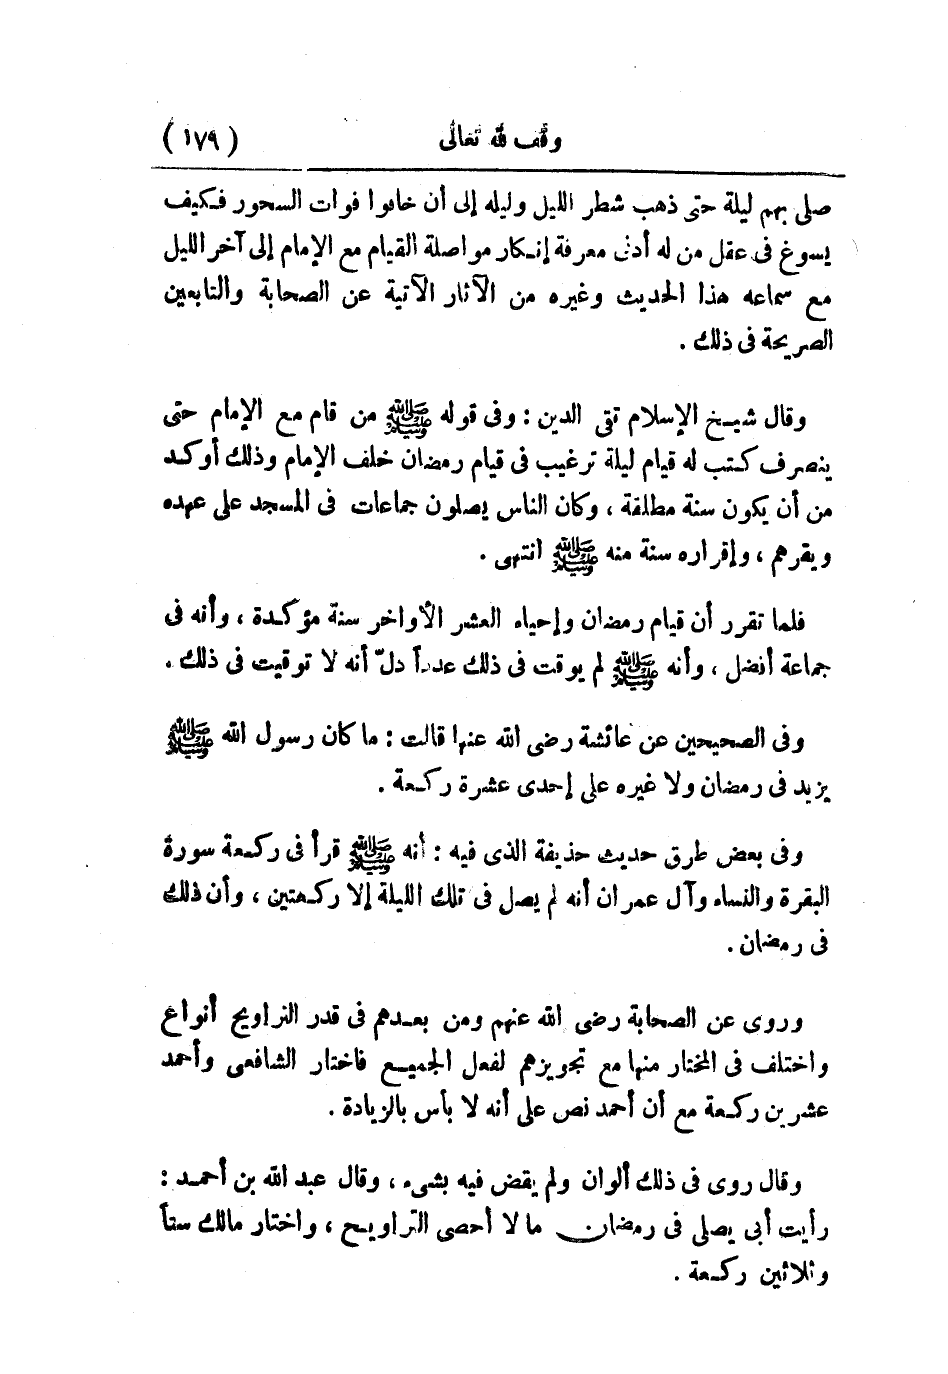 وقف لله تعالى (١٧٩)
صلى بهم ليلة حتى ذهب شطر الليل وليله إلى أن خافوا فوات السحور فكيف
يسوغ فى عقل من له أدنى معرفة إنكار مواصلة القيام مع الإمام إلى آخر الليل
مع سماعه هذا الحديث وغيره من الآثار الآتية عن الصحابة والتابعين
الصريحة فى ذلك .
وقال شيخ الإسلام تقى الدين : وفى قوله ﷺ من قام مع الإمام حتى
ينصرف كتب له قيام ليلة ترغيب فى قيام رمضان خلف الإمام وذلك أوكد
من أن يكون سنة مطلقة ، وكان الناس يصلون جماعات فى المسجد على عهده
ويقرهم ، وإقراره سنة منه ﷺ انتهى .
فلما تقرر أن قيام رمضان وإحياء العشر الأواخر سنة مؤكدة ، وأنه فى
جماعة أفضل ، وأنه ﷺ لم يوقت فى ذلك عدداً دلّ أنه لا توقيت فى ذلك .
وفى الصحيحين عن عائشة رضى الله عنها قالت : ما كان رسول الله ﷺ
يزيد فى رمضان ولا غيره على إحدى عشرة ركعة .
وفى بعض طرق حديث حذيفة الذى فيه : أنه ﷺ قرأ فى ركعة سورة
البقرة والنساء وآل عمران أنه لم يصل فى تلك الليلة إلا ركعتين ، وأن ذلك
فى رمضان .
وروى عن الصحابة رضى الله عنهم ومن بعدهم فى قدر التراويح أنواع
واختلف فى المختار منها مع تجويزهم لفعل الجميع فاختار الشافعى وأحمد
عشرين ركعة مع أن أحمد نص على أنه لا بأس بالزيادة .
وقال روى فى ذلك ألوان ولم يقض فيه بشىء ، وقال عبد الله بن أحمد :
رأيت أبى يصلى فى رمضان ما لا أحصى التراويح ، واختار مالك ستاً
وثلاثين ركعة .